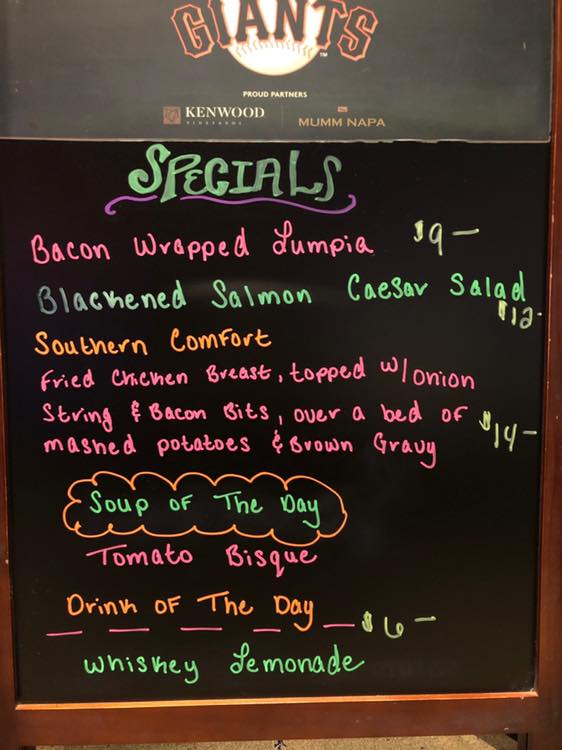 GIANTS
TM
PROUD PARTNERS
KENWOOD
VINEYARDS
MUMM NAPA
SPECIALS
Bacon Wrapped Lumpia $9-
Blackened Salmon Caesar Salad
$12-
Southern Comfort
Fried Chicken Breast, topped w/onion
String & Bacon Bits, over a bed of
mashed potatoes & Brown Gravy $14-
Soup of The Day
Tomato Bisque
Drink of The Day
$6-
Whiskey Lemonade